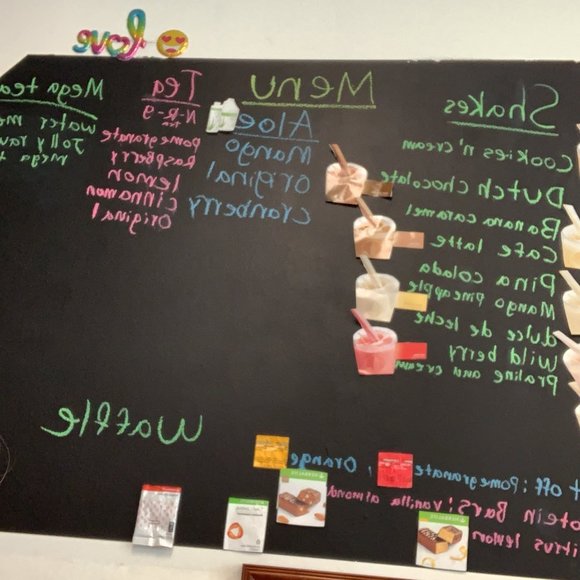 love
Menu
Shakes
Cookies n' cream
Dutch chocolate
Banana caramel
Cafe latte
Pina colada
Mango Pineapple
dulce de leche
Wild berry
Praline and cream
Aloe
Mango
Original
Cranberry
Tea
N-R-G
Pomegranate
Raspberry
Lemon
Cinnamon
Original
Mega tea
water
Jolly
mega
Waffle
off: Pomegranate, Orange
Bars: vanilla almond
lemon